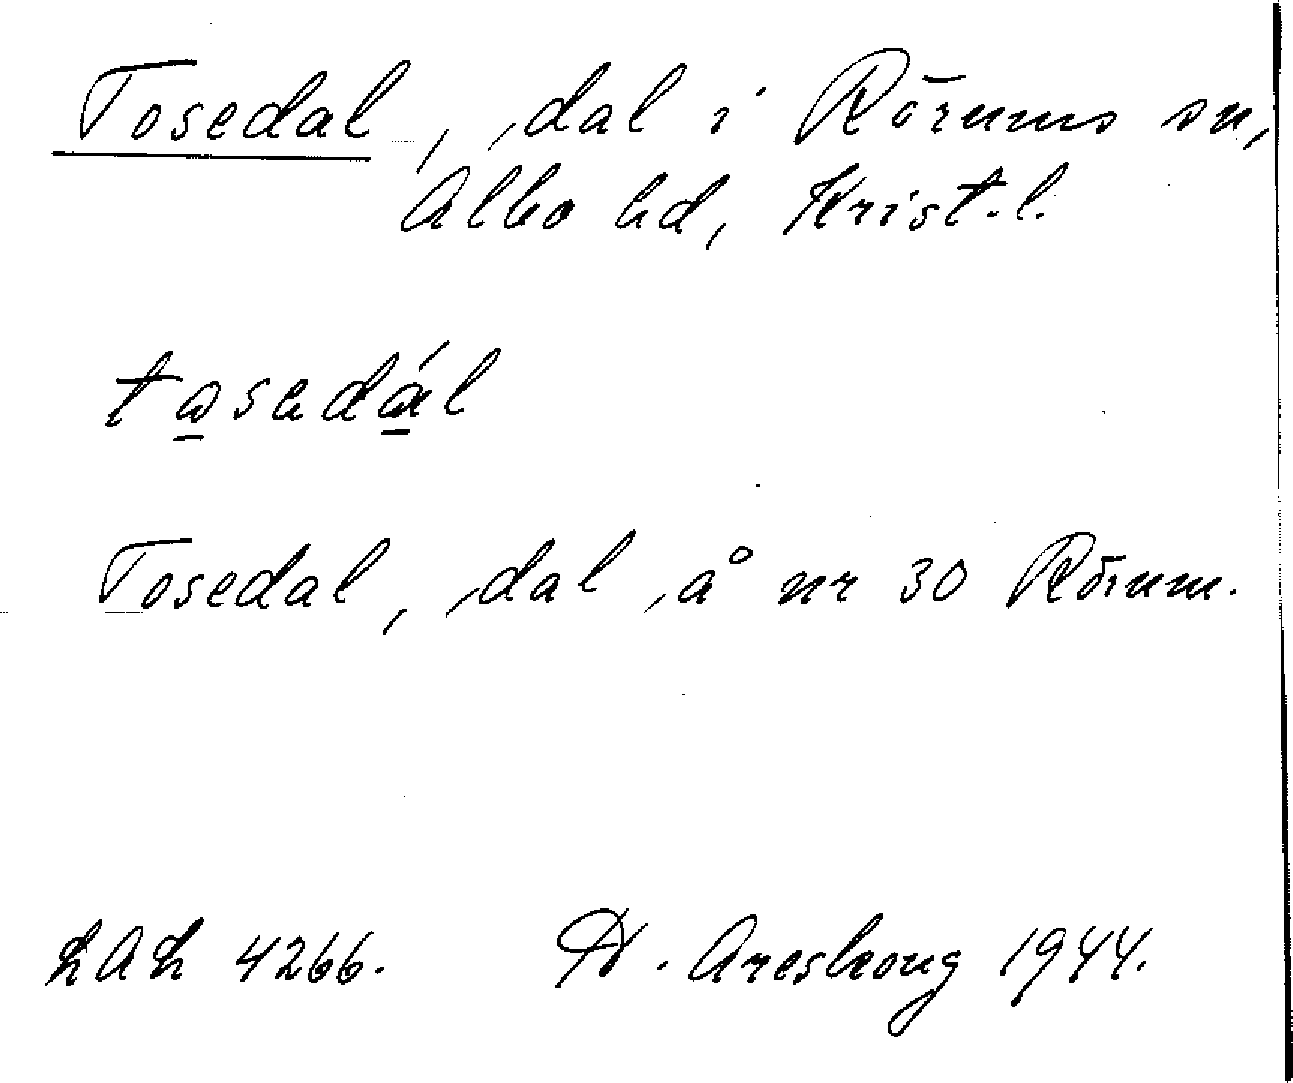 Tosedal, dal i Rörums sn,
Albo hd, Krist. l.
Tosedal, dal å nr 30 Rörum.
LAL 4266. Areskoug 1944.